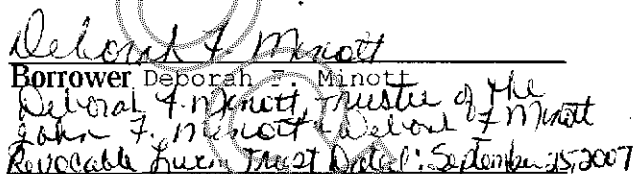 Deborah F. Minott
Borrower Deborah F. Minott
Deborah F. Minott, Trustee of the
John F. Minott Deborah F Minott
Revocable Living Trust Dated: September 25, 2007